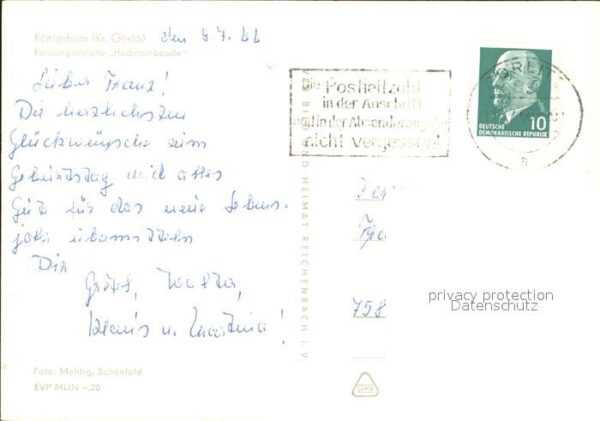 Königshain (Kr. Görlitz) den 8.7.66
Konsumgaststätte „Hochsteinbaude"
Lieber Franz!
Die herzlichsten
Glückwünsche zum
Geburtstag und alles
Gute für das neue Lebens-
jahr übermitteln
Dir
Grete, Walter,
Klaus u. Martina!
Foto: Mehlig, Schönfeld
EVP MDN -,20
VEB BILD UND HEIMAT REICHENBACH I. V.
Die Postleitzahl
in der Anschrift
und in der Absenderangabe
nicht vergessen!
GÖRLITZ
a
10
DEUTSCHE
DEMOKRATISCHE REPUBLIK
758
privacy protection
Datenschutz